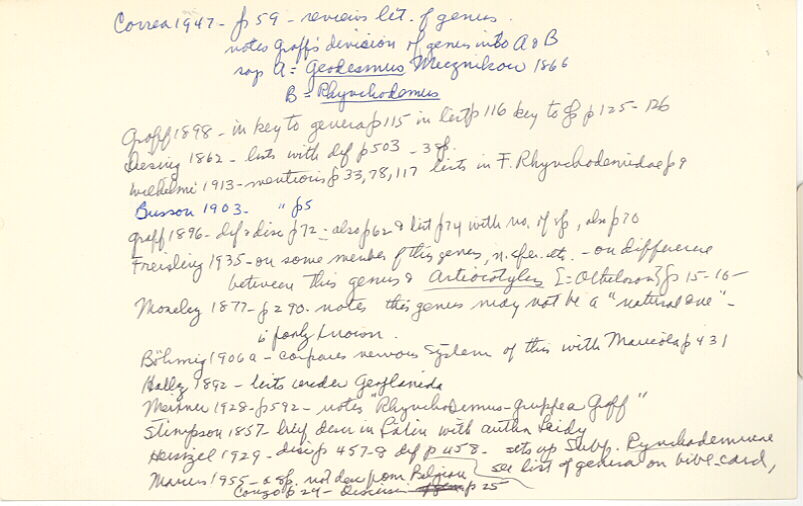 Correa 1947 - p 59 - reviews lit. of genus.
notes Graff's division of genus into A & B
says A = Geodesmus Mecznikow 1866
B = Rhynchodemus
Graff 1898 - in key to genera p 115 in list p 116 key to sp p 125-126
Diesing 1862 - lists with def p 503 - 3 sp.
Wilhelmi 1913 - mentions p 33, 78, 117 lists in F. Rhynchodemidae p 9
Busson 1903 - " p 5
Graff 1896 - def & disc p 72 - also p 62 & list p 74 with no. of sp, also p 70
Freisling 1935 - on some member of this genus, n. etc. - on difference
between this genus & Artiocotylus p 15-16 -
Moseley 1877 - p 290. notes this genus may not be a "natural one" -
is poorly known.
Böhmig 1906a - compares nervous system of this with Maricola p 431
Hallez 1892 - lists under Geoplanida
Meixner 1928 - p 592 - notes "Rhynchodemus-gruppe Graff"
Stimpson 1857 - brief descr in Latin with author Leidy
Heinzel 1929 - disc p 457 & def p 458 - sets up Subf. Rynchodeminae
see list of genera on bibl. card,
Marcus 1955 - a sp. not descr from Belgian
Congo p 24 - Discussion p 25